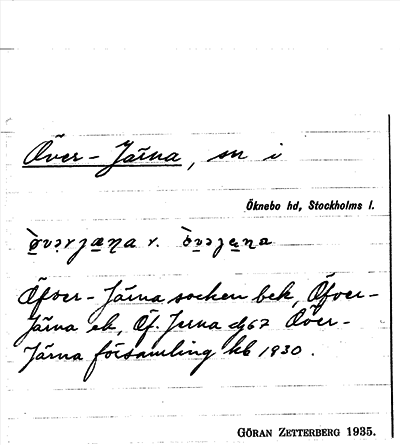 Över-Järna, sn i
Öknebo hd, Stockholms l.
Öfver-Järna socken bek, Öfver-
Järna ek, Öf. Jerna djb7 Över-
Järna församling kb 1930.
GÖRAN ZETTERBERG 1935.